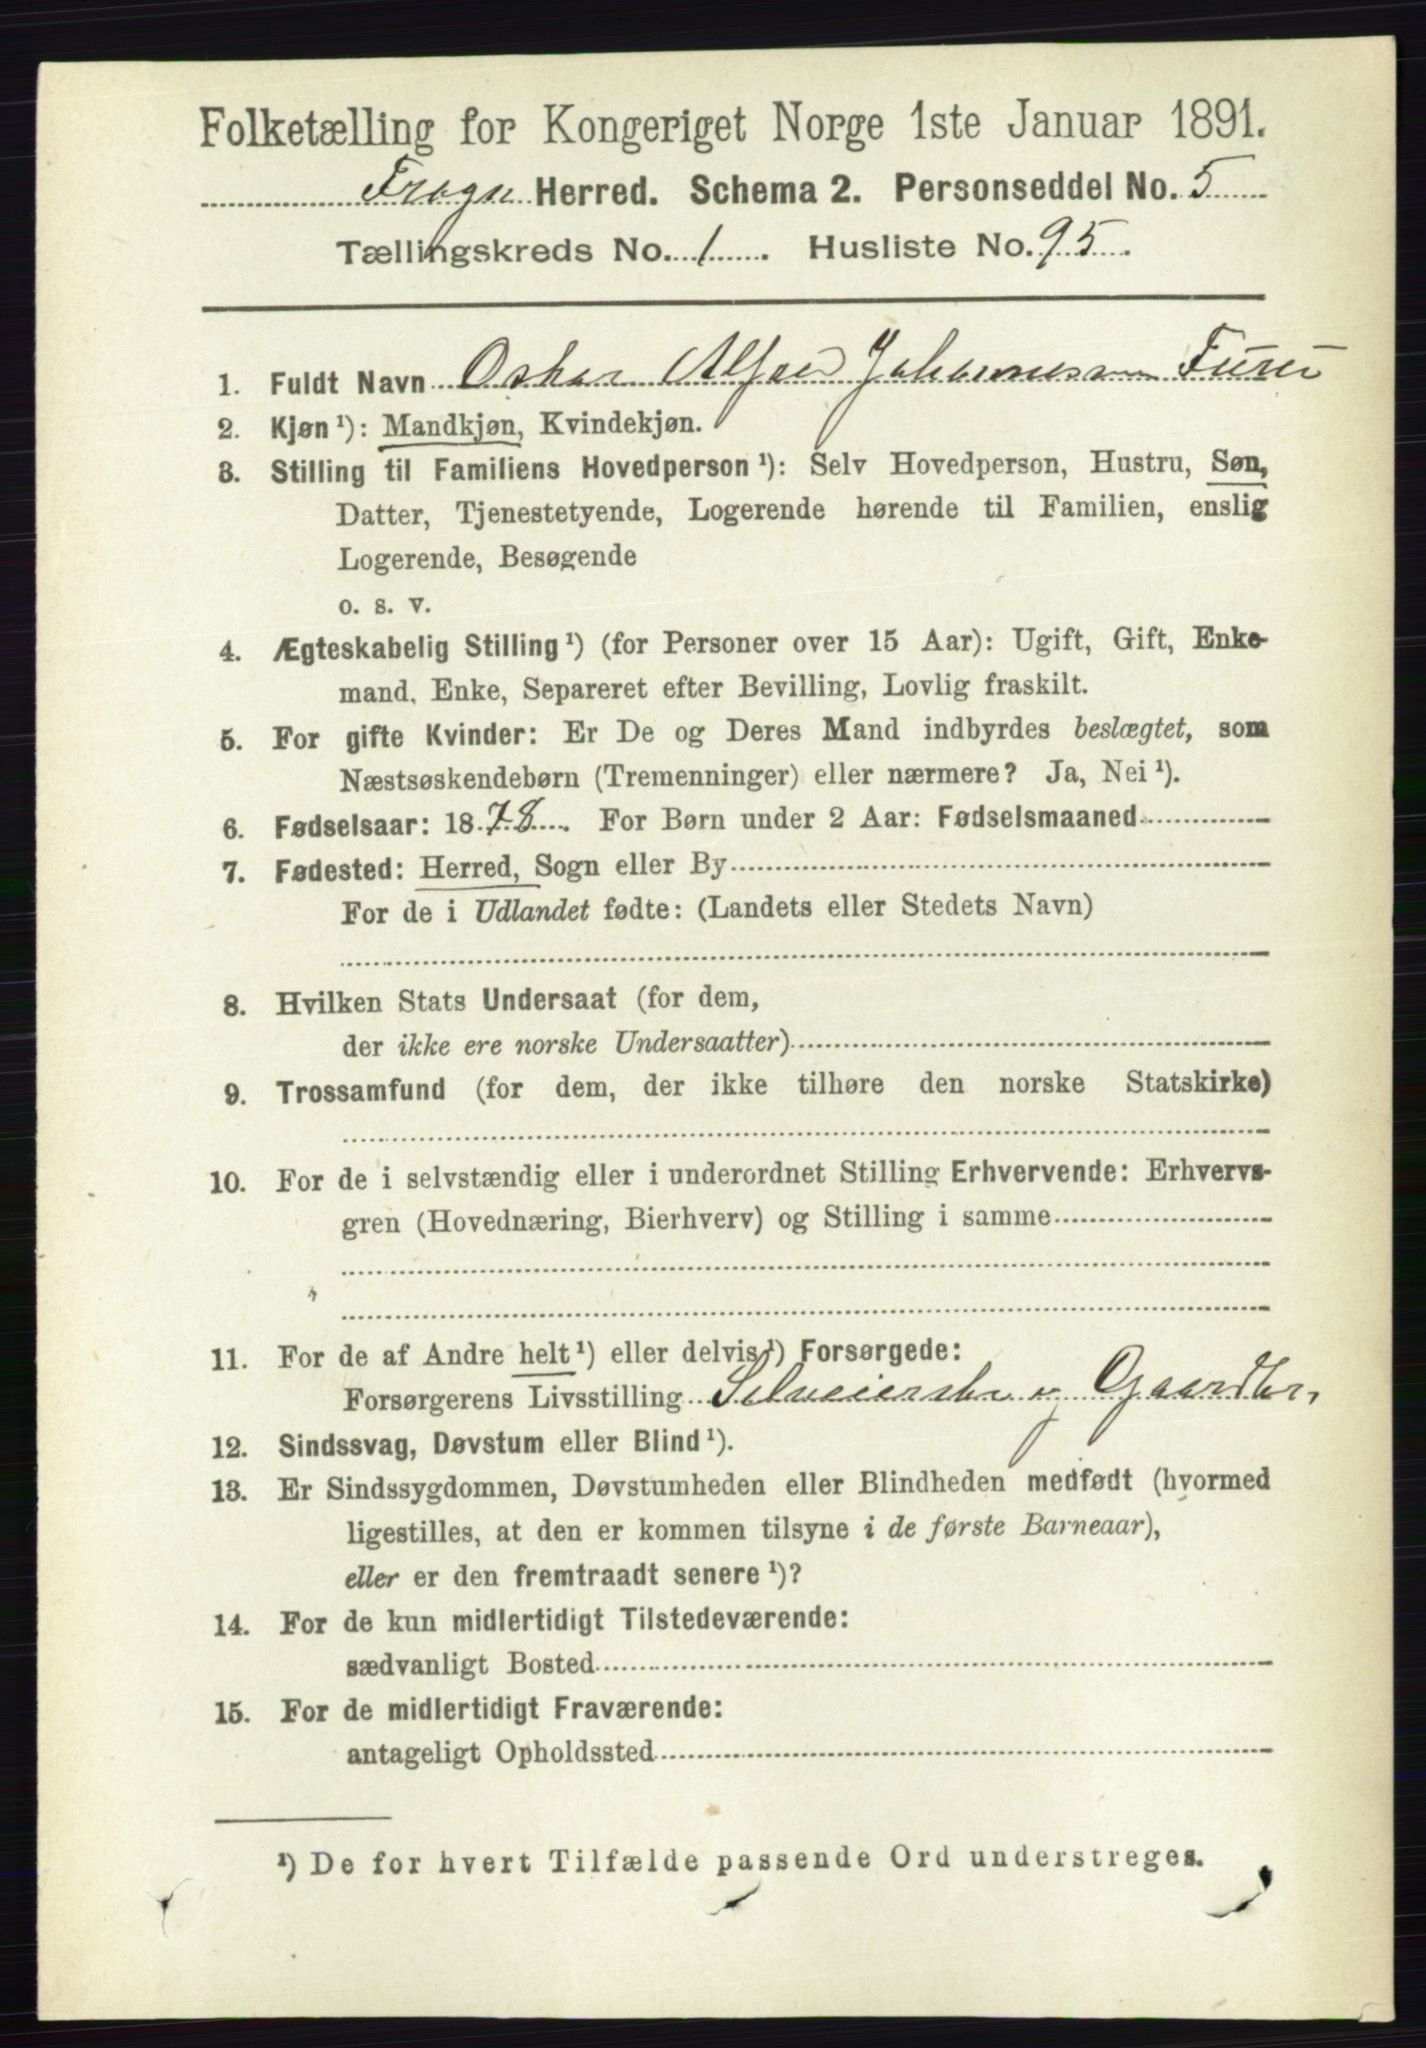 Folketælling for Kongeriget Norge 1ste Januar 1891.
Frogn Herred. Schema 2. Personseddel No. 5
Tællingskreds No. 1. Husliste No. 95.
1. Fuldt Navn Oskar Alfred Johannesen
2. Kjøn ¹): Mandkjøn, Kvindekjøn.
3. Stilling til Familiens Hovedperson ¹): Selv Hovedperson, Hustru, Søn,
Datter, Tjenestetyende, Logerende hørende til Familien, enslig
Logerende, Besøgende
o. s. v.
4. Ægteskabelig Stilling ¹) (for Personer over 15 Aar): Ugift, Gift, Enke-
mand, Enke, Separeret efter Bevilling, Lovlig fraskilt.
5. For gifte Kvinder: Er De og Deres Mand indbyrdes beslægtet, som
Næstsøskendebørn (Tremenninger) eller nærmere? Ja, Nei ¹).
6. Fødselsaar: 1878. For Børn under 2 Aar: Fødselsmaaned
7. Fødested: Herred, Sogn eller By
For de i Udlandet fødte: (Landets eller Stedets Navn)
8. Hvilken Stats Undersaat (for dem,
der ikke ere norske Undersaatter)
9. Trossamfund (for dem, der ikke tilhøre den norske Statskirke)
10. For de i selvstændig eller i underordnet Stilling Erhvervende: Erhvervs-
gren (Hovednæring, Bierhverv) og Stilling i samme
11. For de af Andre helt ¹) eller delvis ¹) Forsørgede:
Forsørgerens Livsstilling Selveier Gaardbr,
12. Sindssvag, Døvstum eller Blind ¹).
13. Er Sindssygdommen, Døvstumheden eller Blindheden medfødt (hvormed
ligestilles, at den er kommen tilsyne i de første Barneaar),
eller er den fremtraadt senere ¹)?
14. For de kun midlertidigt Tilstedeværende:
sædvanligt Bosted
15. For de midlertidigt Fraværende:
antageligt Opholdssted
¹) De for hvert Tilfælde passende Ord understreges.